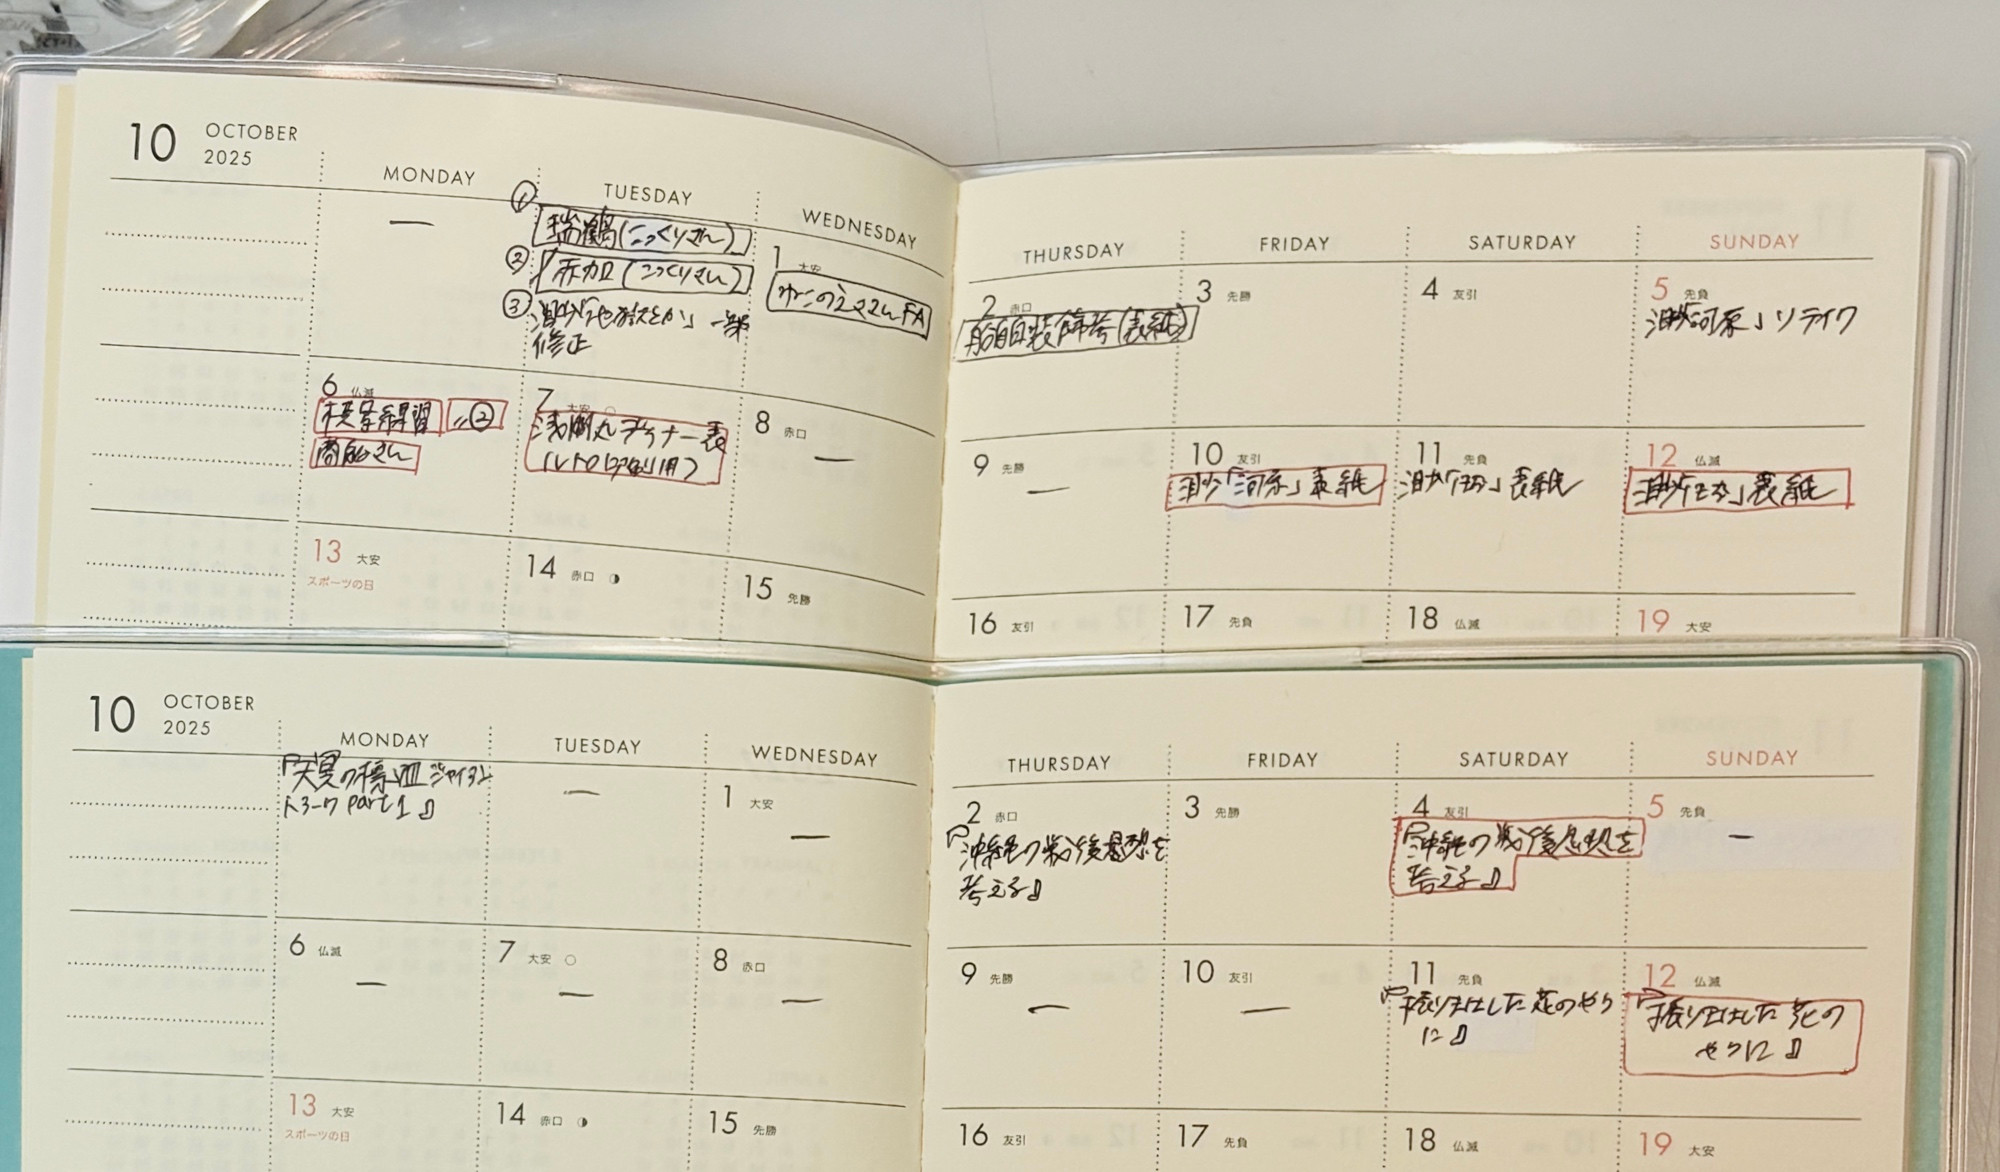 10 OCTOBER
2025
MONDAY
TUESDAY
WEDNESDAY
THURSDAY
FRIDAY
SATURDAY
SUNDAY
—
① 瑞鶴(こっくりさん)
② 赤加(こっくりさん)
③
修正
1 大安
FA
2 赤口
(表紙)
3 先勝
4 友引
5 先負
「河原」リテイク
6 仏滅
練習 〃②
商船さん
7 大安 ○
浅間丸 ディナー表
(レトロ印刷用)
8 赤口
—
9 先勝
—
10 友引
「河原」表紙
11 先負
表紙
12 仏滅
表紙
13 大安
スポーツの日
14 赤口
15 先勝
16 友引
17 先負
18 仏滅
19 大安
10 OCTOBER
2025
MONDAY
TUESDAY
WEDNESDAY
THURSDAY
FRIDAY
SATURDAY
SUNDAY
『天冥の標Ⅷ ジャイアント・
アーク part1』
—
1 大安
—
2 赤口
『沖縄の戦後思想を
考える』
3 先勝
4 友引
『沖縄の戦後思想を
考える』
5 先負
—
6 仏滅
—
7 大安 ○
—
8 赤口
—
9 先勝
—
10 友引
—
11 先負
『振り出した花のやう
に』
12 仏滅
『振り出した花の
やうに』
13 大安
スポーツの日
14 赤口
15 先勝
16 友引
17 先負
18 仏滅
19 大安